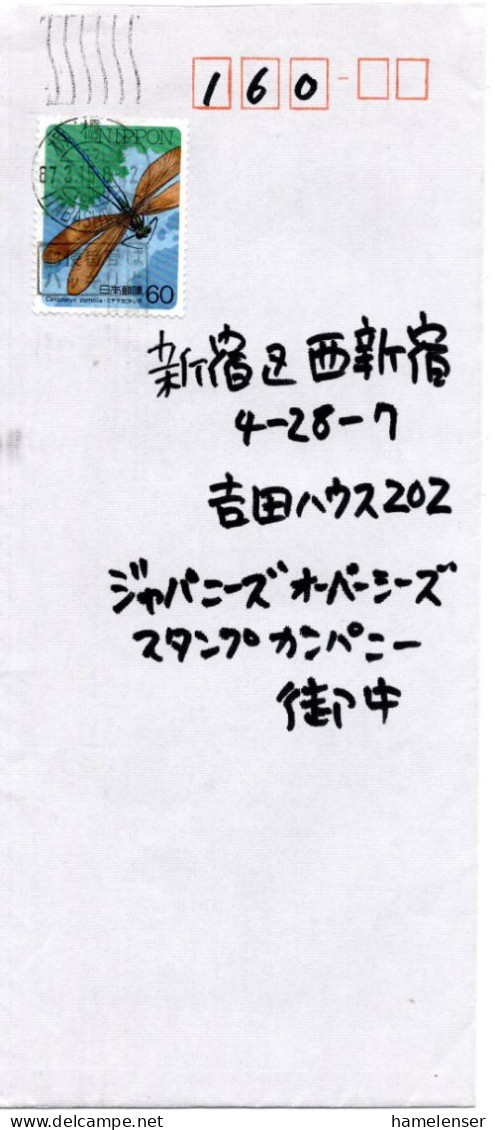 160
NIPPON
日本郵便 60
新宿区西新宿
4-28-7
吉田ハウス202
ジャパニーズオーバーシーズ
スタンプカンパニー
御中
www.delcampe.net
hamelenser